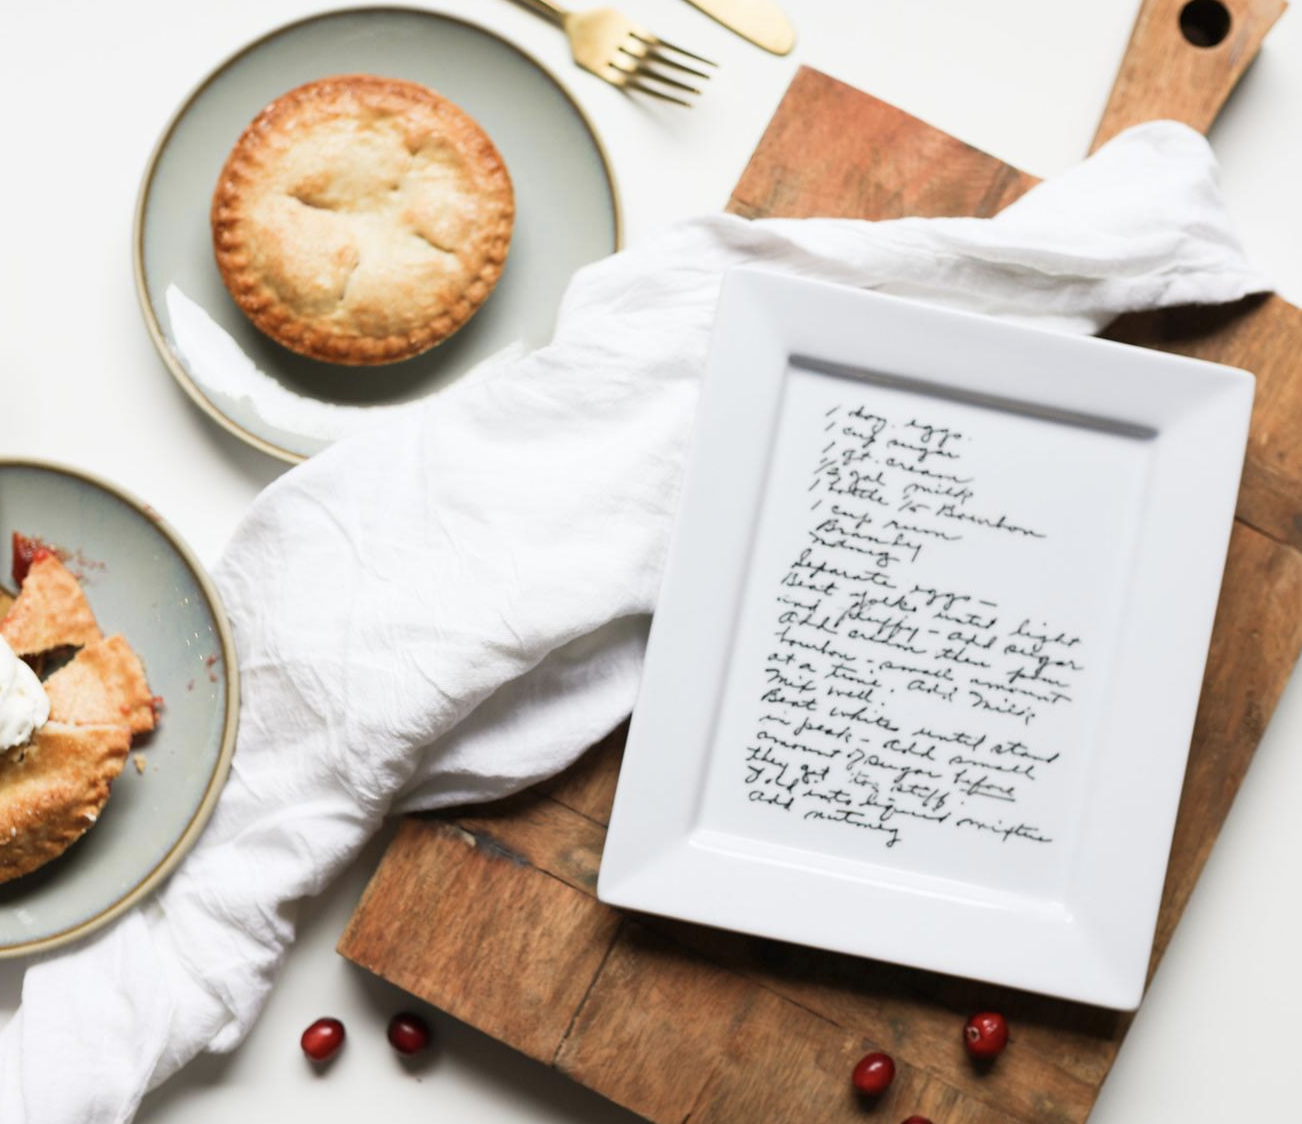 1 doz. eggs.
1 cup sugar
1 qt. cream
1/2 gal milk
1 bottle 1/5 Bourbon
1 cup rum
Brandy
Nutmeg
Separate eggs —
Beat yolks until light
and fluffy - add sugar
Add cream then pour
bourbon - small amount
at a time. Add milk
Mix well.
Beat whites until stand
in peak - add small
amount of sugar before
they get too stiff.
Fold into liquid mixture
add nutmeg